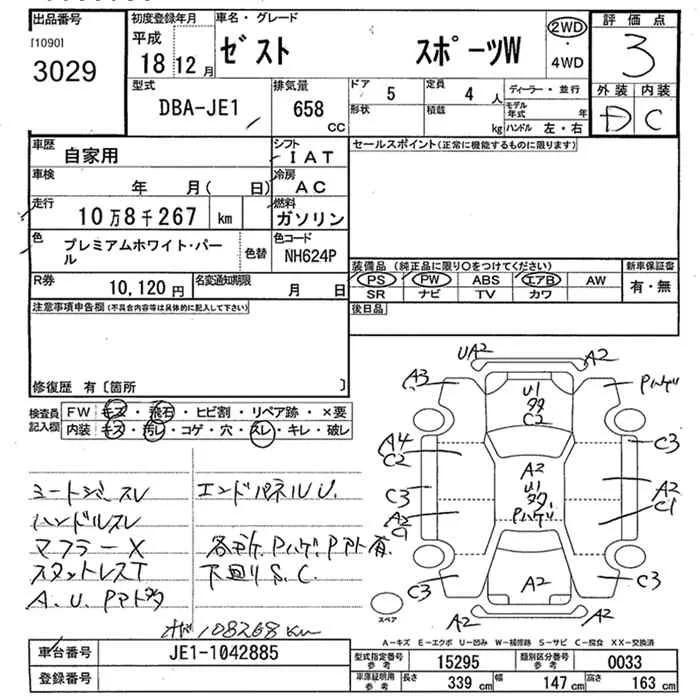 出品番号
[1090]
3029
初度登録年月
平成
18 12月
車名・グレード
ゼスト スポーツW
2WD
・
4WD
評価点
3
外装 内装
D C
型式
DBA-JE1
排気量
658
CC
ドア 5
形状
定員 4 人
積載 kg
ディーラー・並行
モデル年式 年
ハンドル 左・右
車歴 自家用
シフト IAT
車検 年 月( 日)
冷房 AC
走行 10万8千267 km
燃料 ガソリン
色 プレミアムホワイト・パール
色替
色コード NH624P
R券 10,120円
名変通知期限 月 日
セールスポイント(正常に機能するものに限ります)
装備品(純正品に限り○をつけてください)
PS PW ABS エアB AW
SR ナビ TV カワ
新車保証書
有・無
後日品
注意事項申告欄(不具合内容等は具体的に記入して下さい)
修復歴 有〔箇所 〕
検査員記入欄
FW キズ・飛石・ヒビ割・リペア跡・×要
内装 キズ・汚レ・コゲ・穴・スレ・キレ・破レ
シートジミスレ
ハンドルスレ
マフラーX
スタットレスT
A.U.Pアト多
エンドパネルU.
各所、Pハゲ、Pアト有.
下回りS.C.
108268km
UA2
A2
A3
Pハゲ
U1
タタ
C2
A4
C2
C3
C3
A2
C1
A2
U1
タタ,
Pハゲ
A2
C1
C3
C3
A2
A2
A2
スペア
A-キズ E-エクボ U-凹み W-補修跡 S-サビ C-腐食 XX-交換済
車台番号 JE1-1042885
登録番号
型式指定番号 参考 15295
類別区分番号 参考 0033
車庫証明用 参考 長さ 339 cm 幅 147 cm 高さ 163 cm